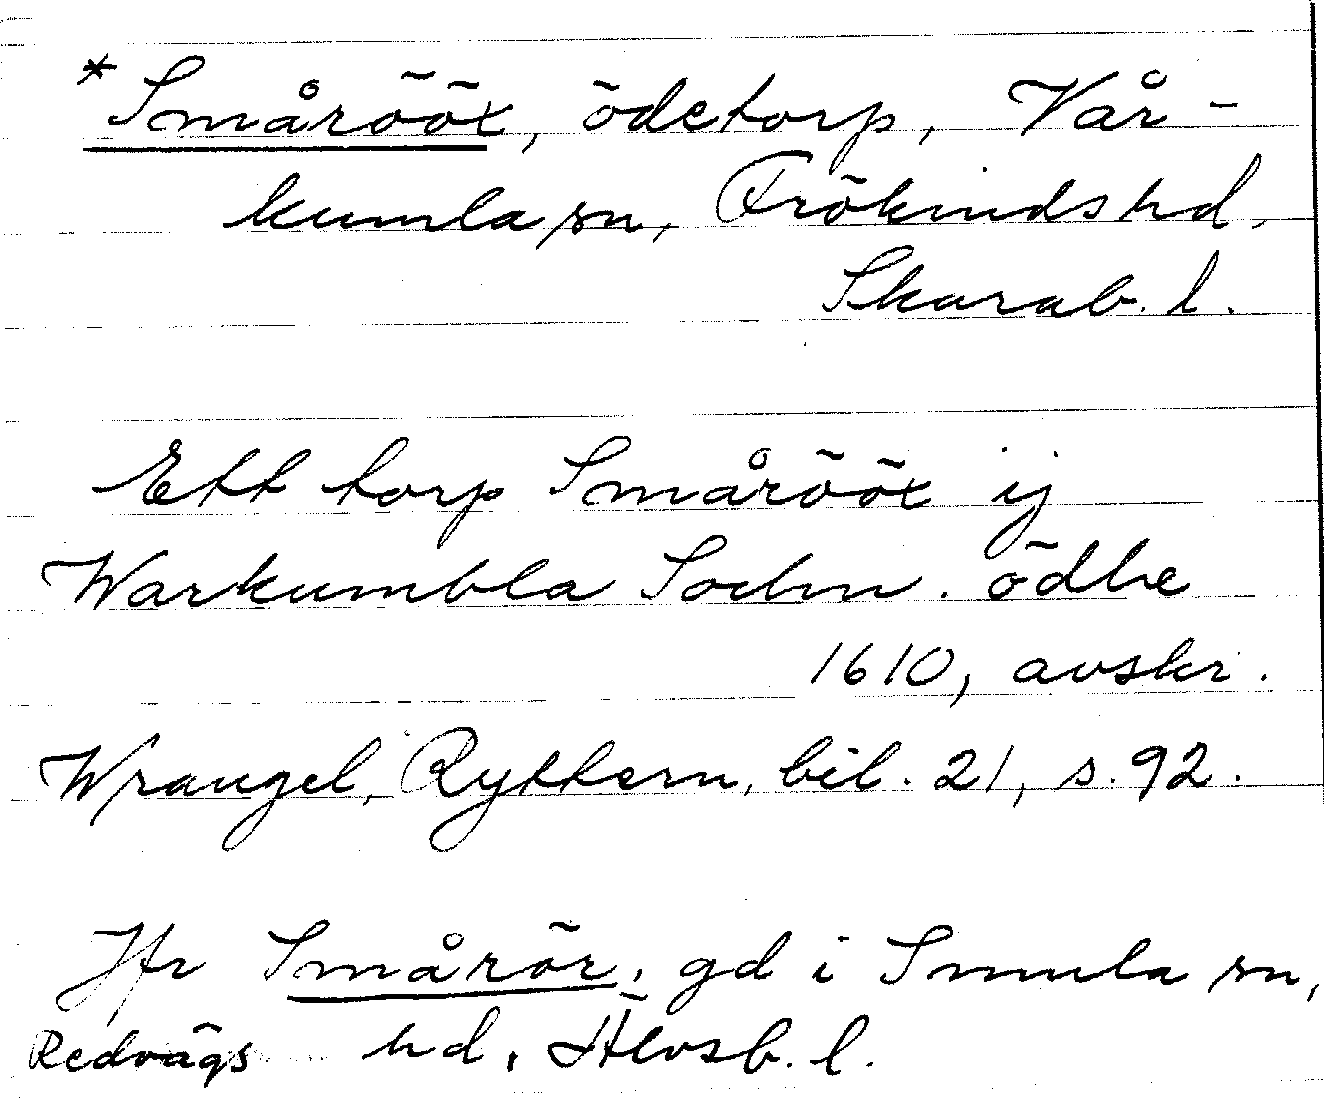 *Smårööx, ödetorp, Vår-
kumla sn, Frökinds hd,
Skarab. l.
Ett torp Smårööx ij
Warkumbla Sochn. ödhe
1610, avskr.
Wrangel, Ryttern, bil. 21, s. 92.
Jfr Smårör, gd i Smula sn,
Redvägs hd, Älvsb. l.